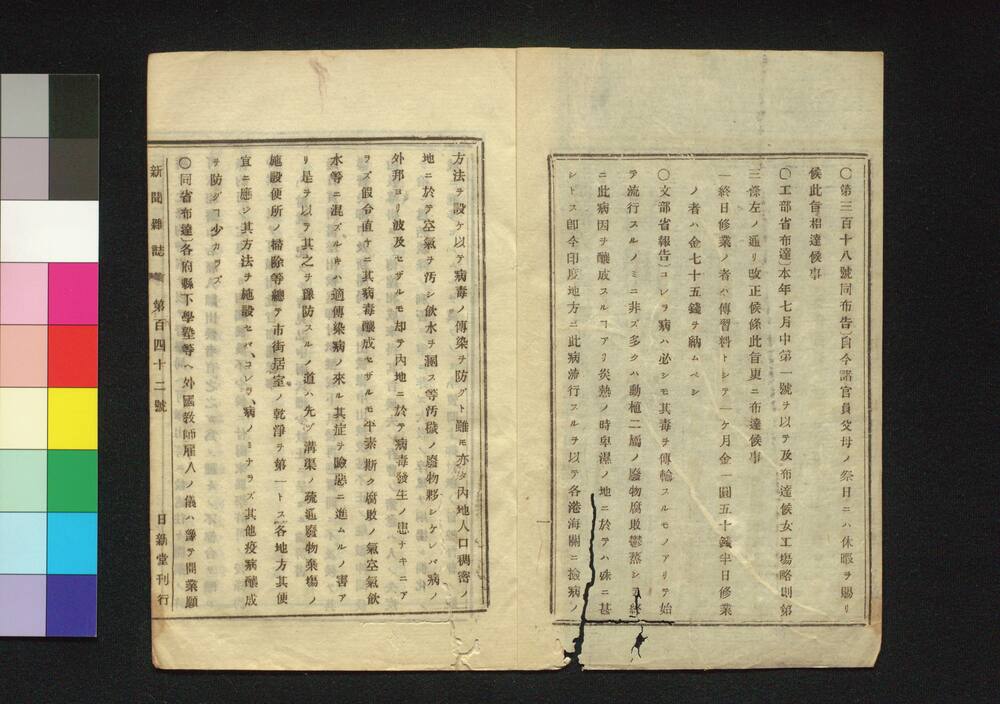 〇第三百十八號同布告〕自今諸官員父母ノ祭日ニハ休暇ヲ賜リ
候此旨相達候事
〇工部省布達〕本年七月中第一號ヲ以テ及布達候女工場略則第
三條左ノ通リ改正候條此旨更ニ布達候事
一終日修業ノ者ハ傳習料トシテ一ケ月金一圓五十錢半日修業
ノ者ハ金七十五錢ヲ納ムベシ
〇文部省報告〕コレラ病ハ必シモ其毒ヲ傳輸スルモノアリテ始
テ流行スルノミニ非ズ多クハ動植二屬ノ廢物腐敗鬱蒸シテ終
ニ此病因ヲ釀成スルヿアリ炎熱ノ時卑濕ノ地ニ於テハ殊ニ甚
シトス卽今印度地方ニ此病流行スルヲ以テ各港海關ニ撿病ノ
方法ヲ設ケ以テ病毒ノ傳染ヲ防グト雖モ亦タ內地人口稠密ノ
地ニ於テ空氣ヲ汚シ飮水ヲ溷ス等汚穢ノ廢物夥シケレバ病ノ
外邦ヨリ波及セザルモ却テ內地ニ於テ病毒發生ノ患ナキニア
ラズ假令直ケニ其病毒釀成セザルモ平素斯ク腐敗ノ氣空氣飮
水等ニ混ズルキハ適傳染病ノ來ル其症ヲ險惡ニ進ムルノ害ア
リ是ヲ以テ其之ヲ豫防スルノ道ハ先ヅ溝渠ノ疏通廢物棄塲ノ
施設便所ノ掃除等總テ市街居室ノ乾淨ヲ第一トス各地方其便
宜ニ應ジ其方法ヲ施設セバ、コレラ、病ノミナラズ其他疫病釀成
ヲ防グヿ少カラズ
〇同省布達〕各府縣下學塾等ヘ外國敎師雇入ノ儀ハ豫テ開業願
新聞雜誌 第百四十二號 日新堂刊行